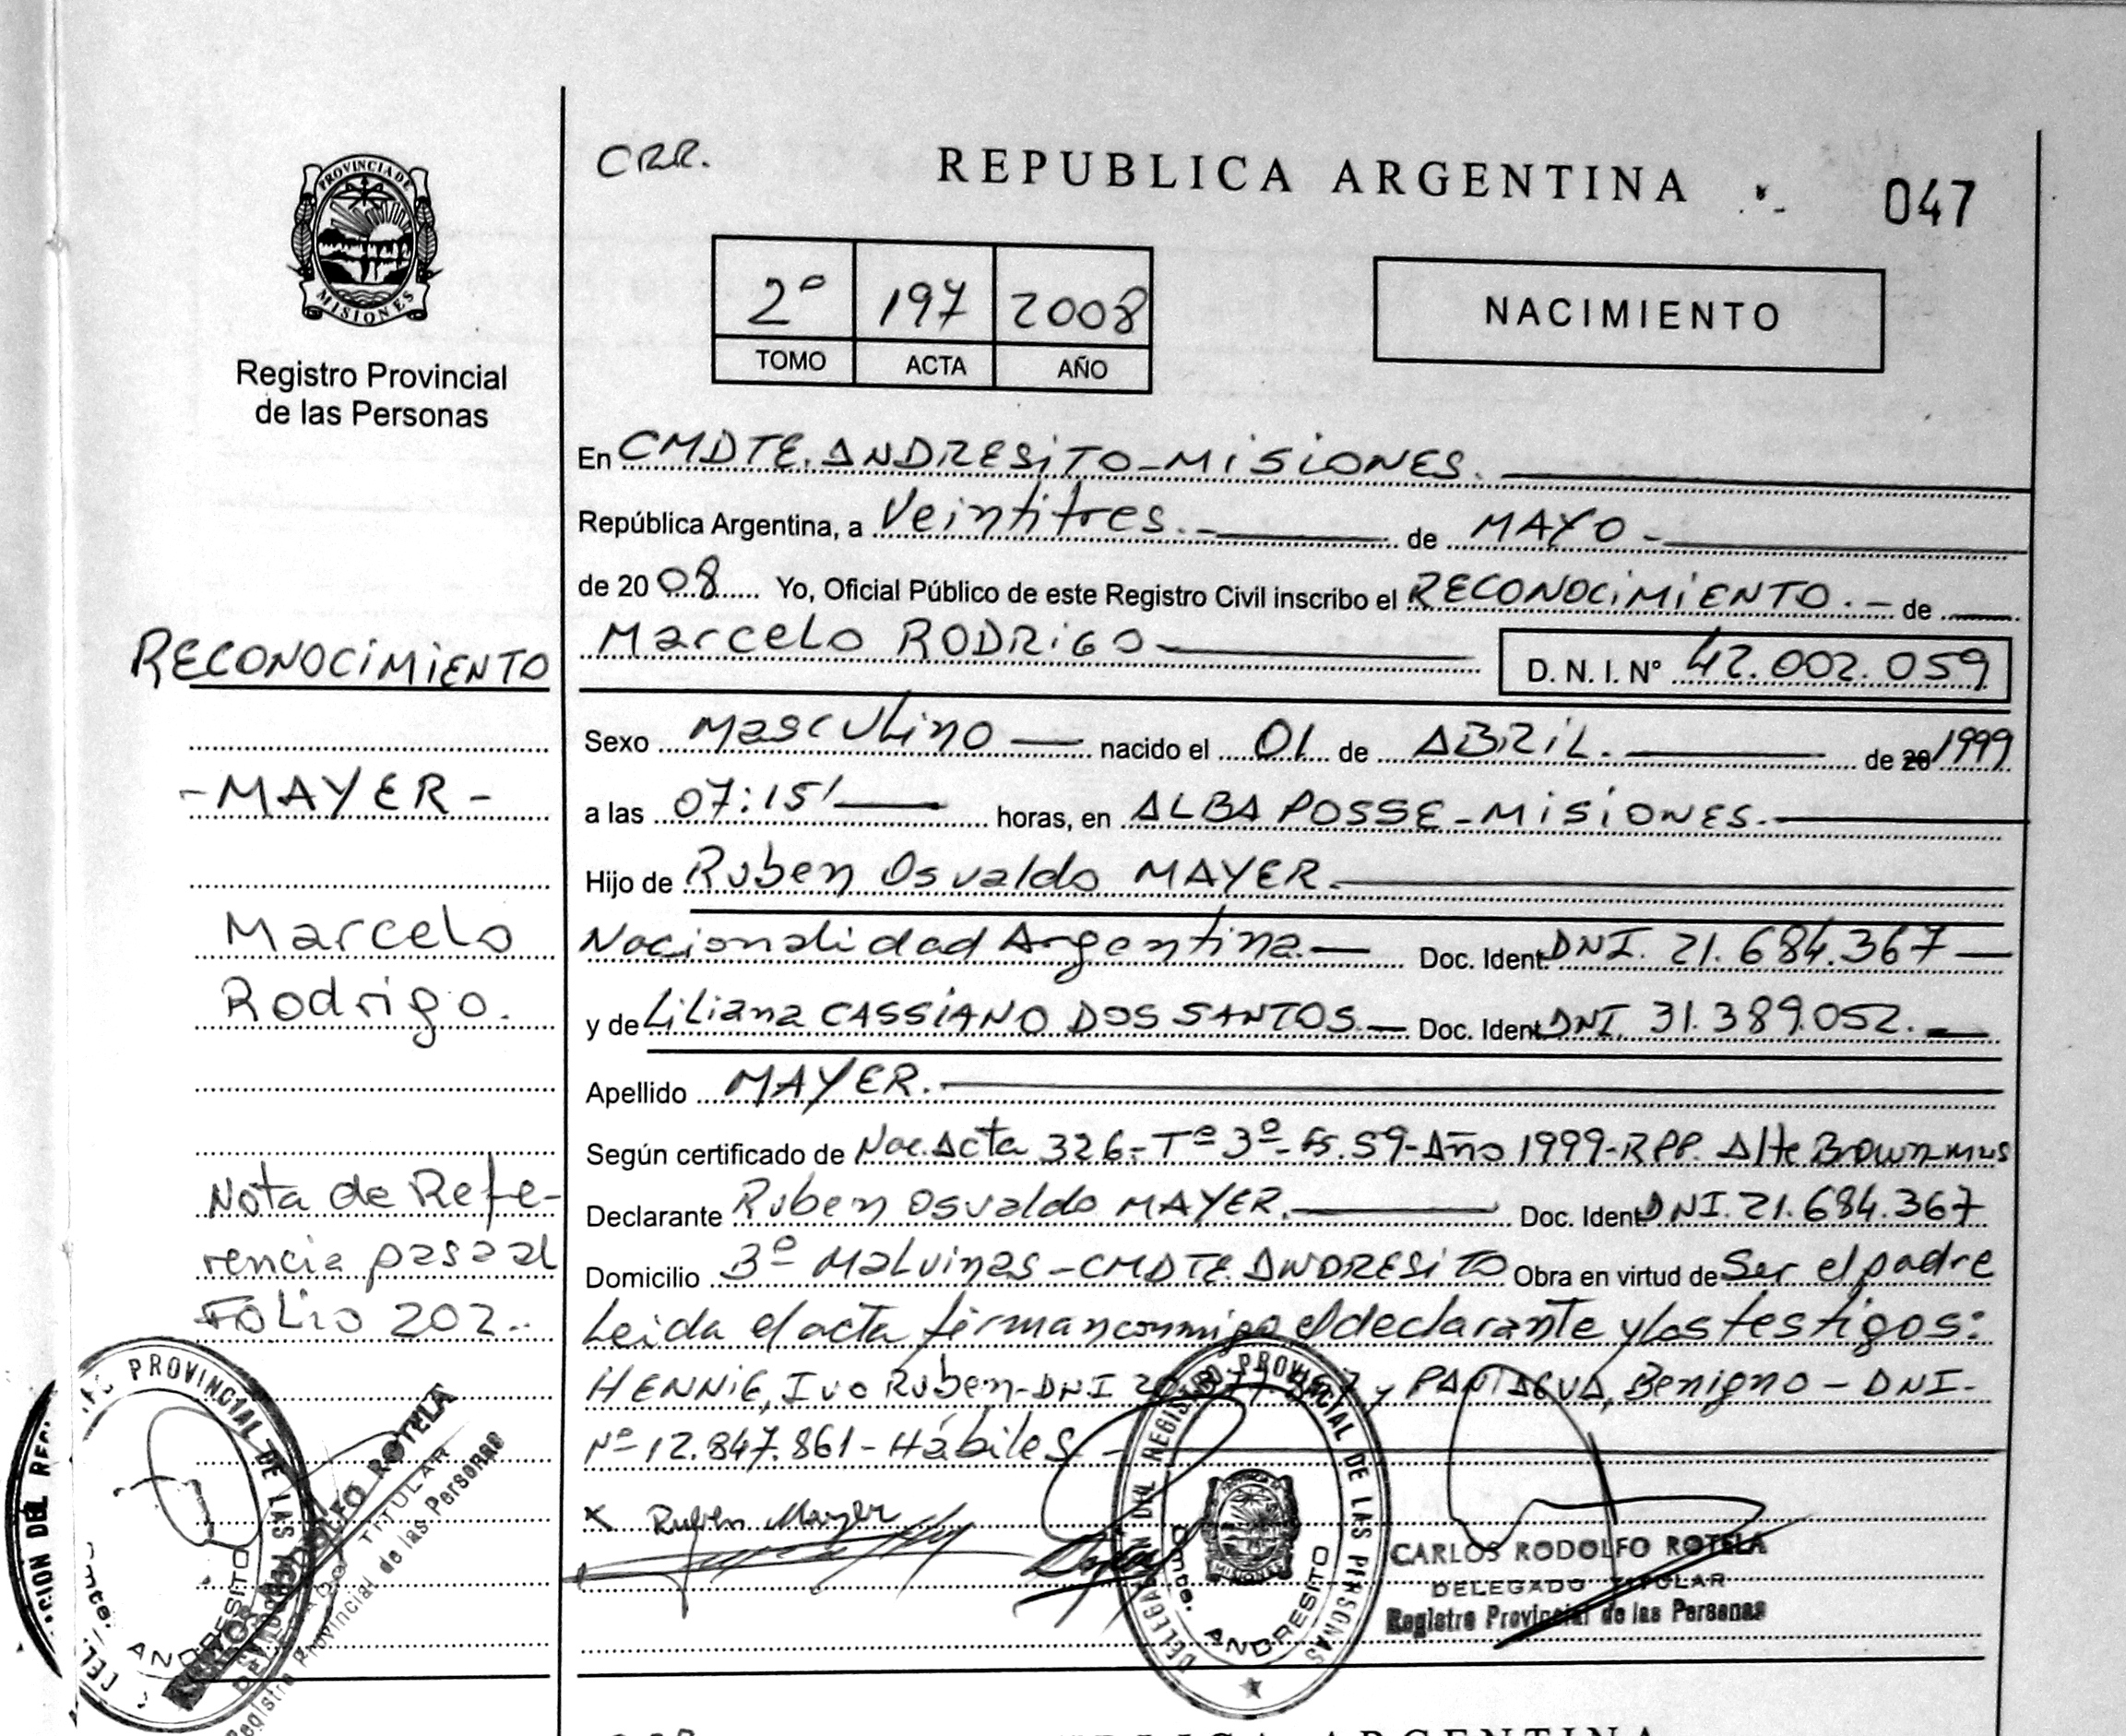 PROVINCIA DE
MISIONES
Registro Provincial
de las Personas
RECONOCIMIENTO
-MAYER-
Marcelo
Rodrigo.
Nota de Refe-
rencia pasa al
FOLIO 202..
CRR.
REPUBLICA ARGENTINA
047
2º 197 2008
TOMO ACTA AÑO
NACIMIENTO
En CMDTE. ANDRESiTO-MiSiONES.
República Argentina, a Veintitres.- de MAYO-
de 20 08 Yo, Oficial Público de este Registro Civil inscribo el RECONOCiMiENTO.- de
Marcelo RODRiGO
D. N. I. Nº 42.002.059
Sexo Masculino nacido el 01 de ABRiL. de 20 1999
a las 07:15' horas, en ALBA POSSE-MiSiONES.
Hijo de Ruben Osvaldo MAYER.
Nacionalidad Argentina. Doc. Ident DNI. 21.684.367
y de Liliana CASSiANO DOS SANTOS. Doc. Ident DNI. 31.389.052.
Apellido MAYER.
Según certificado de Nac. Acta 326-Tº 3º-Fs.59-Año 1999-RPP. Alte Brown-mns
Declarante Ruben Osvaldo MAYER. Doc. Ident DNI. 21.684.367
Domicilio 3º Malvinas-CMDTE. ANDRESiTO Obra en virtud de Ser el padre
Leida el acta firman conmigo el declarante y los testigos:
HENNiG, Ivo Ruben-DNI y PANIAGUA, Benigno-DNI-
Nº 12.847.861-Hábiles
x Ruben Mayer
DELEGACION DEL REGISTRO PROVINCIAL DE LAS PERSONAS
Cmte. ANDRESITO
MISIONES
CARLOS RODOLFO ROTELA
DELEGADO TITULAR
Registro Provincial de las Personas
PROVINCIAL DE LAS
Cmte. ANDRESITO
CARLOS RODOLFO ROTELA
DELEGADO TITULAR
Registro Provincial de las Personas
ARGENTINA